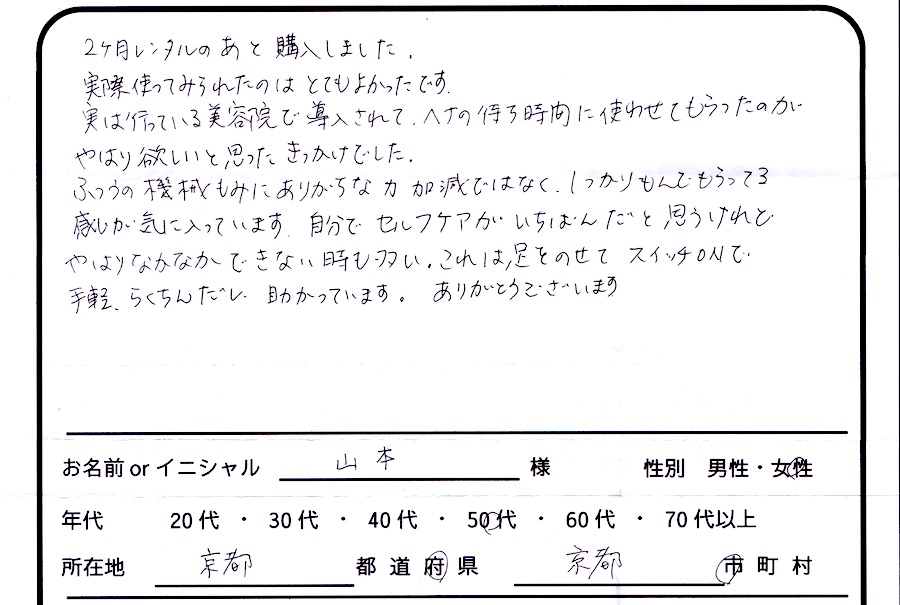 2ケ月レンタルのあと購入しました.
実際使ってみられたのはとてもよかったです.
実は行っている美容院で導入されて、ヘナの待ち時間に使わせてもらったのが
やはり欲しいと思ったきっかけでした.
ふつうの機械もみにありがちな力加減ではなく、しっかりもんでもらってる
感じが気に入っています. 自分でセルフケアがいちばんだと思うけれど
やはりなかなかできない時も多い. これは、足をのせてスイッチONで
手軽、らくちんだし、助かっています。 ありがとうございます
お名前 or イニシャル 山本 様 性別 男性・女性
年代 20代 ・ 30代 ・ 40代 ・ 50代 ・ 60代 ・ 70代以上
所在地 京都 都 道 府 県 京都 市 町 村